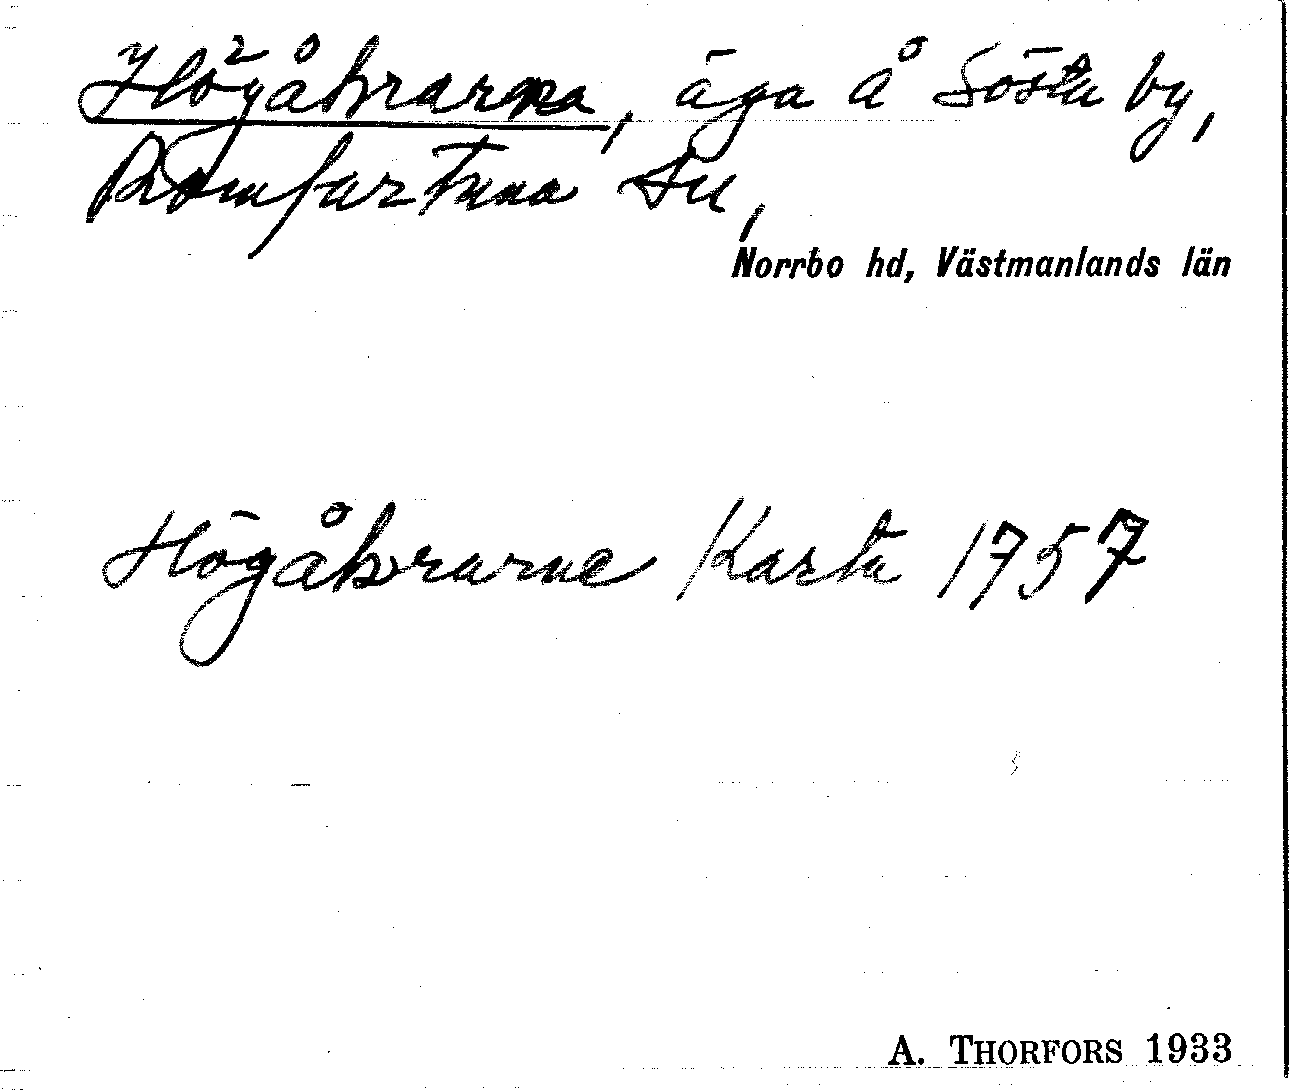 Högåkrarna, äga å Sösta by,
Romfartuna sn,
Norrbo hd, Västmanlands län
Högåkrarne Karta 1757
A. THORFORS 1933